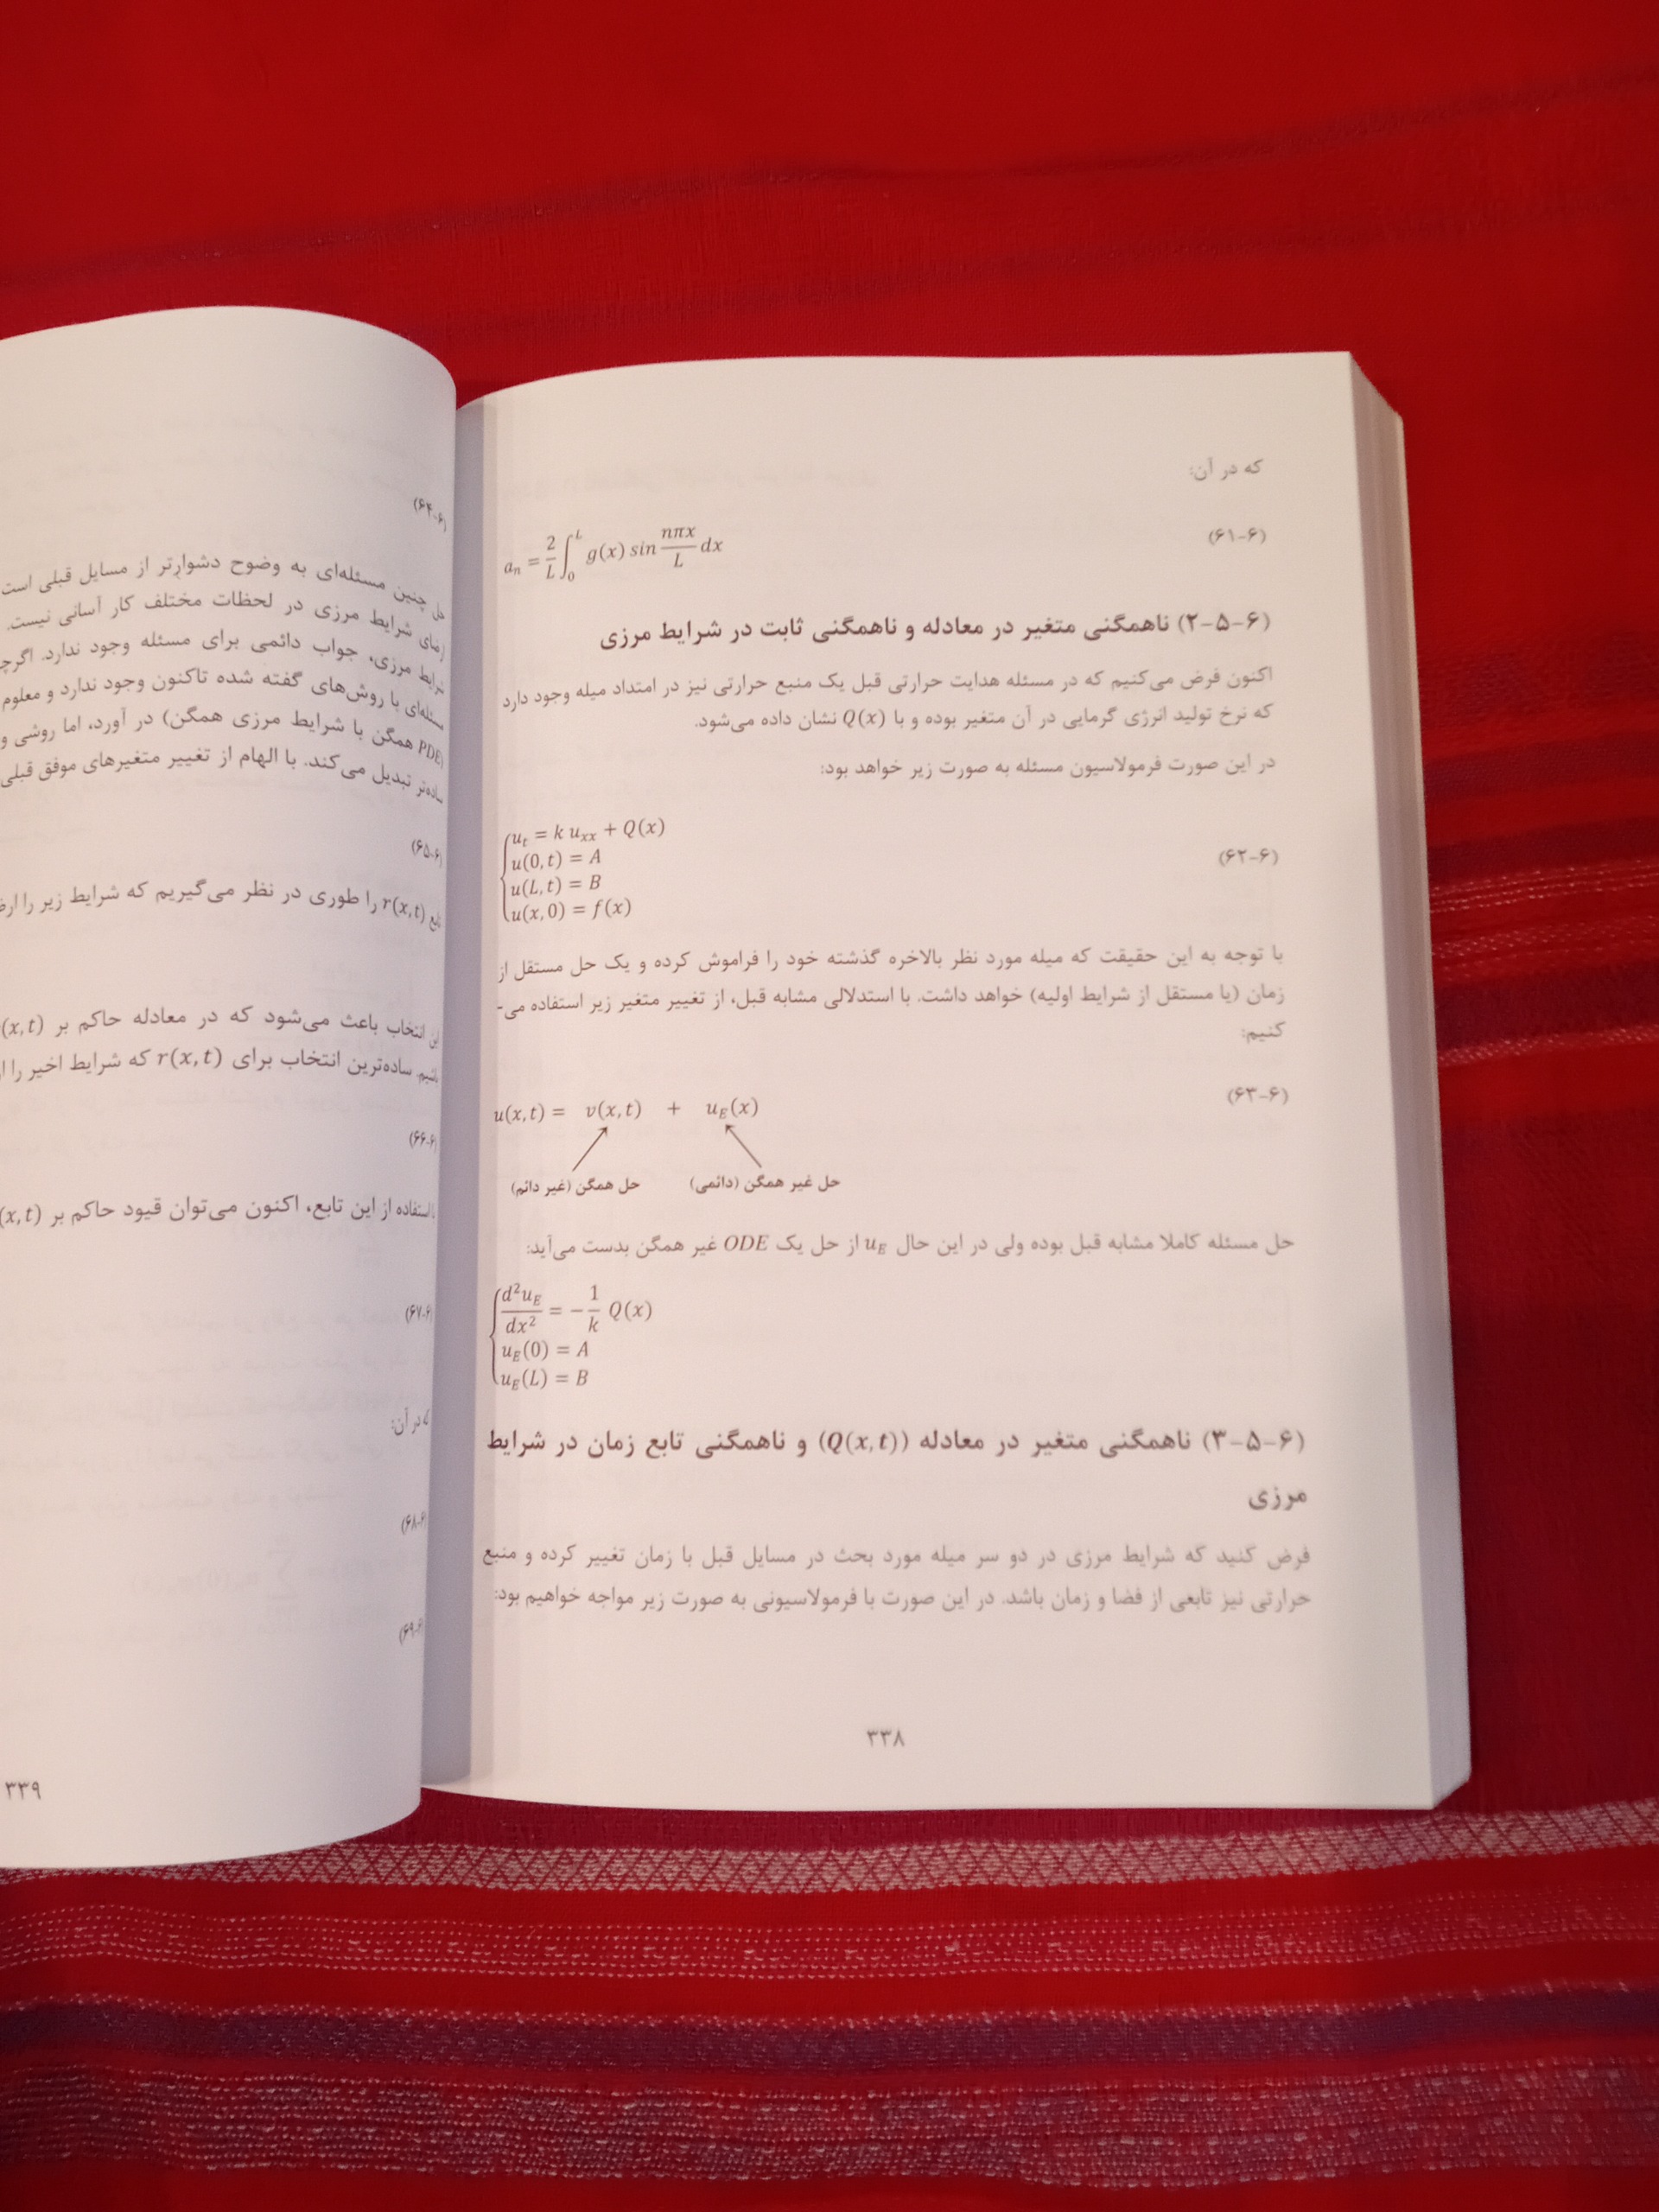 که در آن:
a_n = \frac{2}{L} \int_0^L g(x) sin \frac{nπx}{L} dx (۶۱-۶)
(۶-۵-۲) ناهمگنی متغیر در معادله و ناهمگنی ثابت در شرایط مرزی
اکنون فرض می‌کنیم که در مسئله هدایت حرارتی قبل یک منبع حرارتی نیز در امتداد میله وجود دارد
که نرخ تولید انرژی گرمایی در آن متغیر بوده و با Q(x) نشان داده می‌شود.
در این صورت فرمولاسیون مسئله به صورت زیر خواهد بود:
u_t = k u_{xx} + Q(x)
u(0, t) = A
u(L, t) = B (۶۲-۶)
u(x, 0) = f(x)
با توجه به این حقیقت که میله مورد نظر بالاخره گذشته خود را فراموش کرده و یک حل مستقل از
زمان (یا مستقل از شرایط اولیه) خواهد داشت. با استدلالی مشابه قبل، از تغییر متغیر زیر استفاده می-
کنیم:
u(x, t) = v(x, t) + u_E(x) (۶۳-۶)
حل همگن (غیر دائم) حل غیر همگن (دائمی)
حل مسئله کاملا مشابه قبل بوده ولی در این حال u_E از حل یک ODE غیر همگن بدست می‌آید:
\frac{d^2 u_E}{dx^2} = -\frac{1}{k} Q(x)
u_E(0) = A
u_E(L) = B
(۶-۵-۳) ناهمگنی متغیر در معادله (Q(x, t)) و ناهمگنی تابع زمان در شرایط
مرزی
فرض کنید که شرایط مرزی در دو سر میله مورد بحث در مسایل قبل با زمان تغییر کرده و منبع
حرارتی نیز تابعی از فضا و زمان باشد. در این صورت با فرمولاسیونی به صورت زیر مواجه خواهیم بود:
۳۳۸
(۶۴-۶)
حل چنین مسئله‌ای به وضوح دشوارتر از مسایل قبلی است
زمای شرایط مرزی در لحظات مختلف کار آسانی نیست.
شرایط مرزی، جواب دائمی برای مسئله وجود ندارد. اگرچ
مسئله‌ای با روش‌های گفته شده تاکنون وجود ندارد و معلوم
(PDE همگن با شرایط مرزی همگن) در آورد، اما روشی و
ساده‌تر تبدیل می‌کند. با الهام از تغییر متغیرهای موفق قبلی
(۶۵-۶)
تابع r(x, t) را طوری در نظر می‌گیریم که شرایط زیر را ارض
این انتخاب باعث می‌شود که در معادله حاکم بر (x, t)
باشیم. ساده‌ترین انتخاب برای r(x, t) که شرایط اخیر را ا
(۶۶-۶)
با استفاده از این تابع، اکنون می‌توان قیود حاکم بر (x, t)
(۶۷-۶)
که در آن:
(۶۸-۶)
(۶۹-۶)
۳۳۹